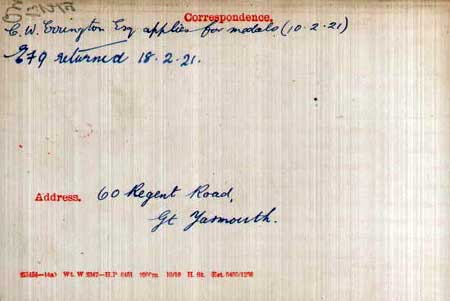 Correspondence.
C. W. Errington Esq applies for medals (10.2.21)
EF9 returned 18.2.21.
Address. 60 Regent Road,
Gt Yarmouth.
Wt. W 5347—H.P 10/19 H. St.